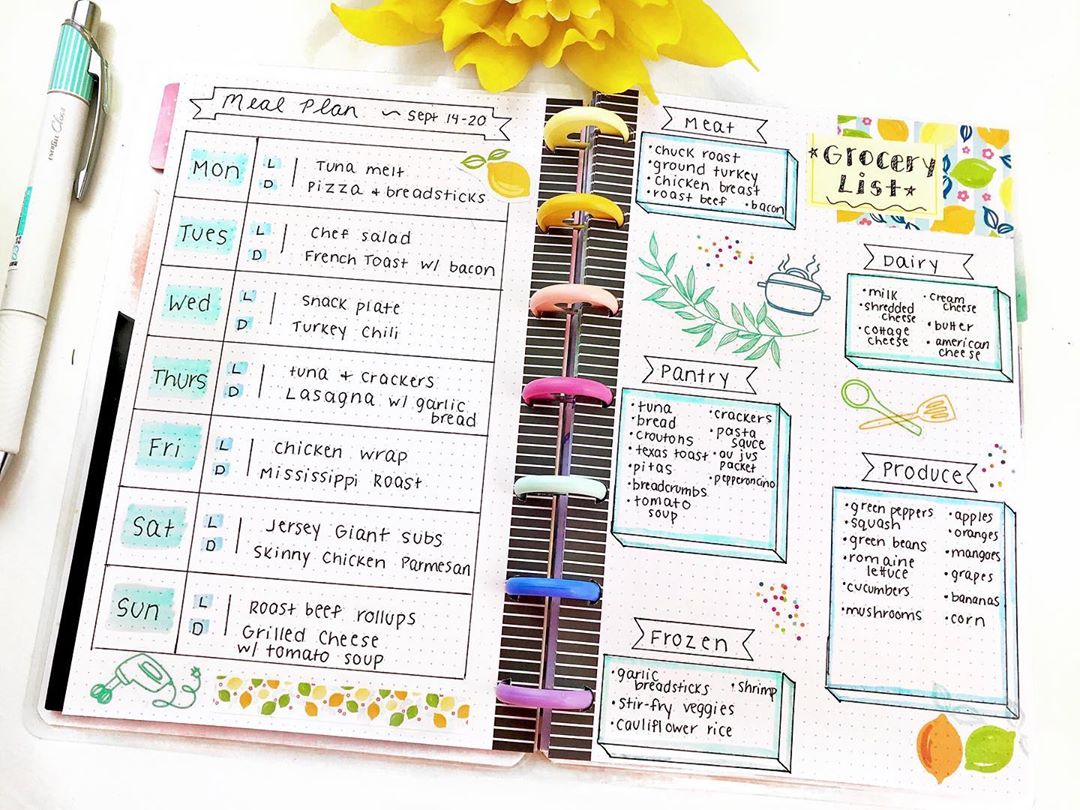 Meal Plan ~ Sept 14-20
Mon
L
Tuna melt
D
Pizza + breadsticks
Tues
L
Chef salad
D
French Toast w/ bacon
Wed
L
Snack plate
D
Turkey Chili
Thurs
L
tuna + crackers
D
Lasagna w/ garlic
bread
Fri
L
Chicken wrap
D
Mississippi Roast
Sat
L
Jersey Giant subs
D
Skinny Chicken Parmesan
Sun
L
Roast beef rollups
D
Grilled Cheese
w/ tomato soup
Grocery
List
Meat
•chuck roast
•ground turkey
•chicken breast
•roast beef •bacon
Dairy
•milk
•shredded
cheese
•cottage
cheese
•cream
cheese
•butter
•american
cheese
Pantry
•tuna
•bread
•croutons
•texas toast
•pitas
•breadcrumbs
•tomato
soup
•crackers
•pasta
sauce
•au jus
packet
•pepperoncino
Produce
•green peppers
•squash
•green beans
•romaine
lettuce
•cucumbers
•mushrooms
•apples
•oranges
•mangoes
•grapes
•bananas
•corn
Frozen
•garlic
breadsticks
•shrimp
•stir-fry veggies
•cauliflower rice